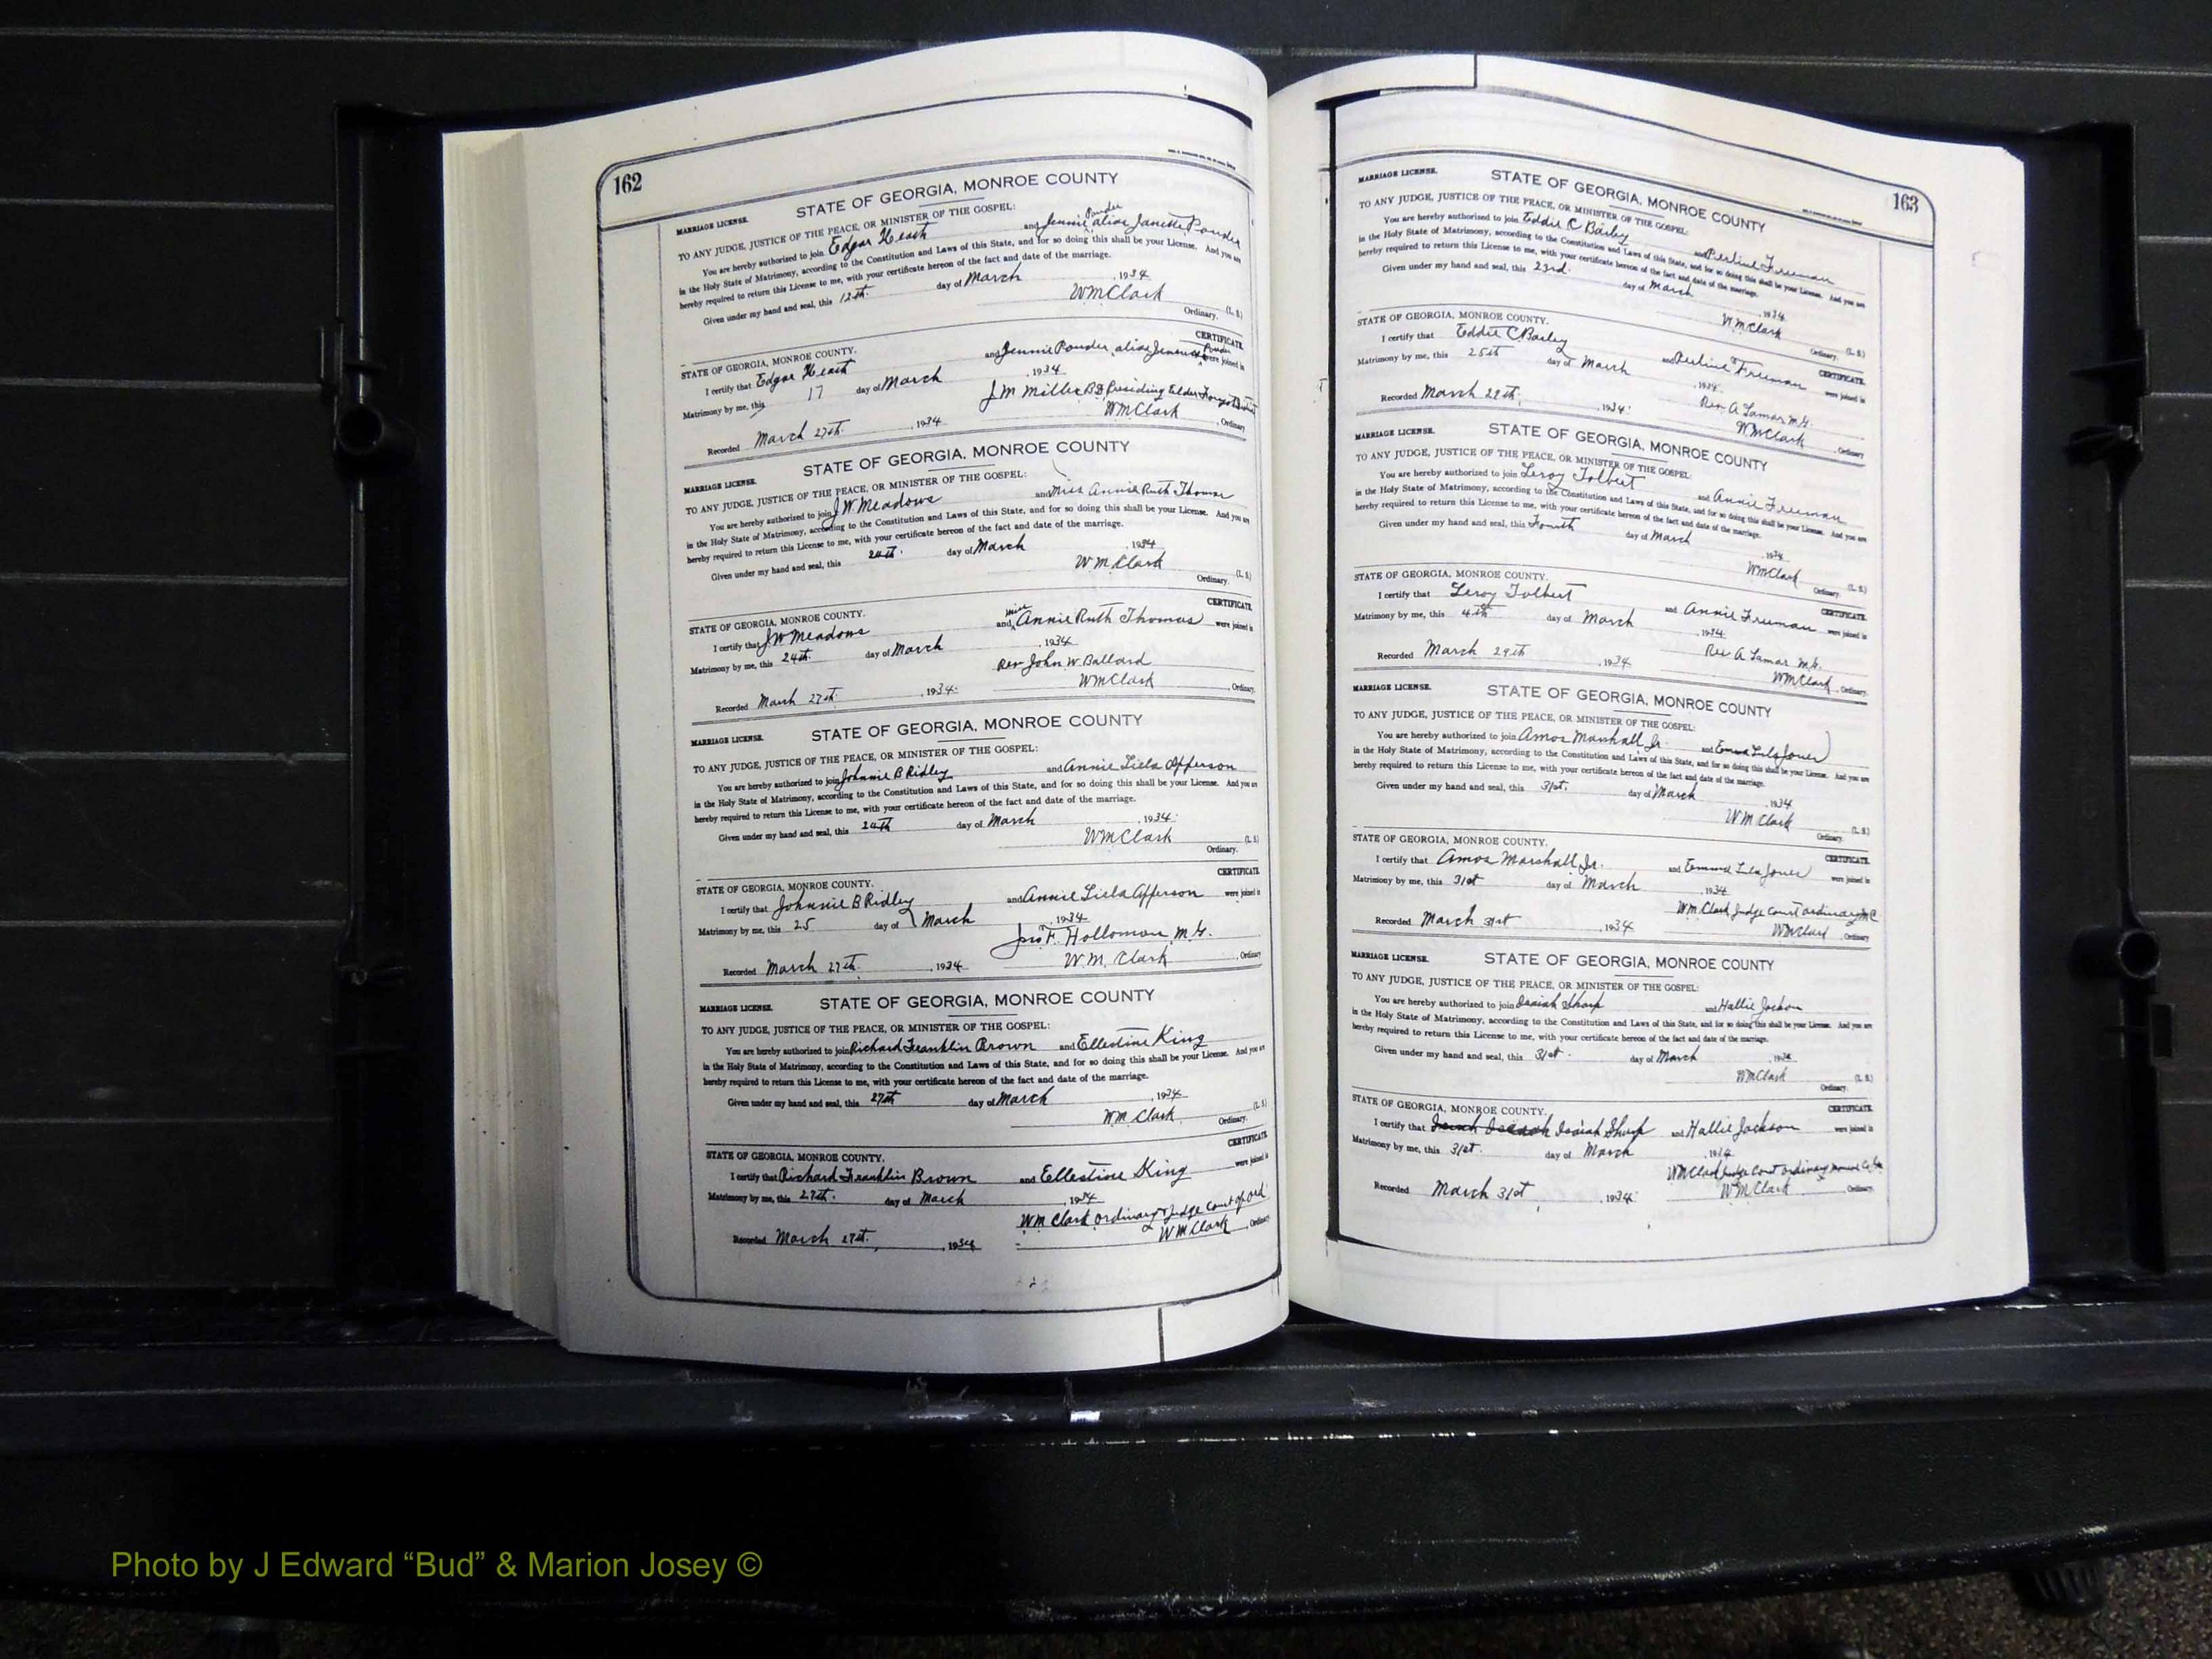 162
MARRIAGE LICENSE. STATE OF GEORGIA, MONROE COUNTY
TO ANY JUDGE, JUSTICE OF THE PEACE, OR MINISTER OF THE GOSPEL:
Ponder
You are hereby authorized to join Edgar Heath and Jennie alias Janette Ponder
in the Holy State of Matrimony, according to the Constitution and Laws of this State, and for so doing this shall be your License. And you are
hereby required to return this License to me, with your certificate hereon of the fact and date of the marriage.
Given under my hand and seal, this 12th. day of March , 1934
WM Clark
Ordinary. (L. S.)
CERTIFICATE.
STATE OF GEORGIA, MONROE COUNTY.
I certify that Edgar Heath and Jennie Ponder, alias Ponder were joined in
Matrimony by me, this 17 day of March , 1934
J M Miller BD Presiding Elder
Recorded March 27th. , 1934 WM Clark , Ordinary
MARRIAGE LICENSE. STATE OF GEORGIA, MONROE COUNTY
TO ANY JUDGE, JUSTICE OF THE PEACE, OR MINISTER OF THE GOSPEL:
You are hereby authorized to join J W Meadows and Miss Annie Ruth Thomas
in the Holy State of Matrimony, according to the Constitution and Laws of this State, and for so doing this shall be your License. And you are
hereby required to return this License to me, with your certificate hereon of the fact and date of the marriage.
Given under my hand and seal, this 24th. day of March , 1934
W M Clark
Ordinary. (L. S.)
CERTIFICATE.
STATE OF GEORGIA, MONROE COUNTY.
I certify that J W Meadows and Miss Annie Ruth Thomas were joined in
Matrimony by me, this 24th. day of March , 1934
Rev John W Ballard
Recorded March 27th. , 1934. WM Clark , Ordinary.
MARRIAGE LICENSE. STATE OF GEORGIA, MONROE COUNTY
TO ANY JUDGE, JUSTICE OF THE PEACE, OR MINISTER OF THE GOSPEL:
You are hereby authorized to join Johnnie B Ridley and Annie Liela Apperson
in the Holy State of Matrimony, according to the Constitution and Laws of this State, and for so doing this shall be your License. And you are
hereby required to return this License to me, with your certificate hereon of the fact and date of the marriage.
Given under my hand and seal, this 24th day of March , 1934.
WM Clark
Ordinary. (L. S.)
CERTIFICATE.
STATE OF GEORGIA, MONROE COUNTY.
I certify that Johnnie B Ridley and Annie Liela Apperson were joined in
Matrimony by me, this 25 day of March , 1934
Jno F. Holloman, M.G.
Recorded March 27th. , 1934 W.M. Clark , Ordinary
MARRIAGE LICENSE. STATE OF GEORGIA, MONROE COUNTY
TO ANY JUDGE, JUSTICE OF THE PEACE, OR MINISTER OF THE GOSPEL:
You are hereby authorized to join Richard Franklin Brown and Ellestine King
in the Holy State of Matrimony, according to the Constitution and Laws of this State, and for so doing this shall be your License. And you are
hereby required to return this License to me, with your certificate hereon of the fact and date of the marriage.
Given under my hand and seal, this 27th day of March , 1934
WM Clark
Ordinary. (L. S.)
CERTIFICATE
STATE OF GEORGIA, MONROE COUNTY.
I certify that Richard Franklin Brown and Ellestine King were joined in
Matrimony by me, this 27th. day of March , 1934
WM Clark Ordinary & Judge Court of Ord
Recorded March 27th. , 1934 WM Clark , Ordinary
163
MARRIAGE LICENSE. STATE OF GEORGIA, MONROE COUNTY
TO ANY JUDGE, JUSTICE OF THE PEACE, OR MINISTER OF THE GOSPEL:
You are hereby authorized to join Eddie C Bailey and Perline Freeman
in the Holy State of Matrimony, according to the Constitution and Laws of this State, and for so doing this shall be your License. And you are
hereby required to return this License to me, with your certificate hereon of the fact and date of the marriage.
Given under my hand and seal, this 23rd. day of March , 1934
WM Clark
Ordinary. (L. S.)
STATE OF GEORGIA, MONROE COUNTY. CERTIFICATE.
I certify that Eddie C Bailey and Perline Freeman were joined in
Matrimony by me, this 25th day of March , 1934
Rev A Lamar M.G.
Recorded March 29th. , 1934. WM Clark , Ordinary
MARRIAGE LICENSE. STATE OF GEORGIA, MONROE COUNTY
TO ANY JUDGE, JUSTICE OF THE PEACE, OR MINISTER OF THE GOSPEL
You are hereby authorized to join Leroy Tolbert and Annie Freeman
in the Holy State of Matrimony, according to the Constitution and Laws of this State, and for so doing this shall be your License. And you are
hereby required to return this License to me, with your certificate hereon of the fact and date of the marriage.
Given under my hand and seal, this Fourth day of March , 1934
WM Clark
Ordinary. (L. S.)
STATE OF GEORGIA, MONROE COUNTY. CERTIFICATE.
I certify that Leroy Tolbert and Annie Freeman were joined in
Matrimony by me, this 4th day of March , 1934
Rev A Lamar M.G.
Recorded March 29th , 1934 WM Clark , Ordinary.
MARRIAGE LICENSE. STATE OF GEORGIA, MONROE COUNTY
TO ANY JUDGE, JUSTICE OF THE PEACE, OR MINISTER OF THE GOSPEL:
You are hereby authorized to join Amos Marshall Jr. and Emma Lula Jones
in the Holy State of Matrimony, according to the Constitution and Laws of this State, and for so doing this shall be your License. And you are
hereby required to return this License to me, with your certificate hereon of the fact and date of the marriage.
Given under my hand and seal, this 31st. day of March , 1934
WM Clark
Ordinary. (L. S.)
STATE OF GEORGIA, MONROE COUNTY. CERTIFICATE.
I certify that Amos Marshall Jr. and Emma Lula Jones were joined in
Matrimony by me, this 31st day of March , 1934
WM Clark Judge Court Ordinary MC
Recorded March 31st , 1934 WM Clark , Ordinary
MARRIAGE LICENSE. STATE OF GEORGIA, MONROE COUNTY
TO ANY JUDGE, JUSTICE OF THE PEACE, OR MINISTER OF THE GOSPEL:
You are hereby authorized to join Isaiah Sharp and Hallie Jackson
in the Holy State of Matrimony, according to the Constitution and Laws of this State, and for so doing this shall be your License. And you are
hereby required to return this License to me, with your certificate hereon of the fact and date of the marriage.
Given under my hand and seal, this 31st. day of March , 1934
WM Clark
Ordinary. (L. S.)
STATE OF GEORGIA, MONROE COUNTY. CERTIFICATE.
I certify that Isaiah Sharp and Hallie Jackson were joined in
Matrimony by me, this 31st. day of March , 1934
WM Clark Judge Court Ordinary Monroe Co Ga
Recorded March 31st , 1934 WM Clark , Ordinary.
Photo by J Edward “Bud” & Marion Josey ©